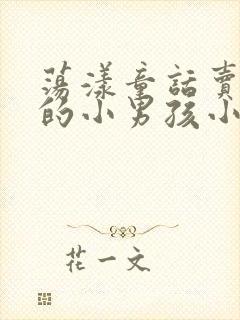 蕩漾童話賣
的小男孩小
花一文